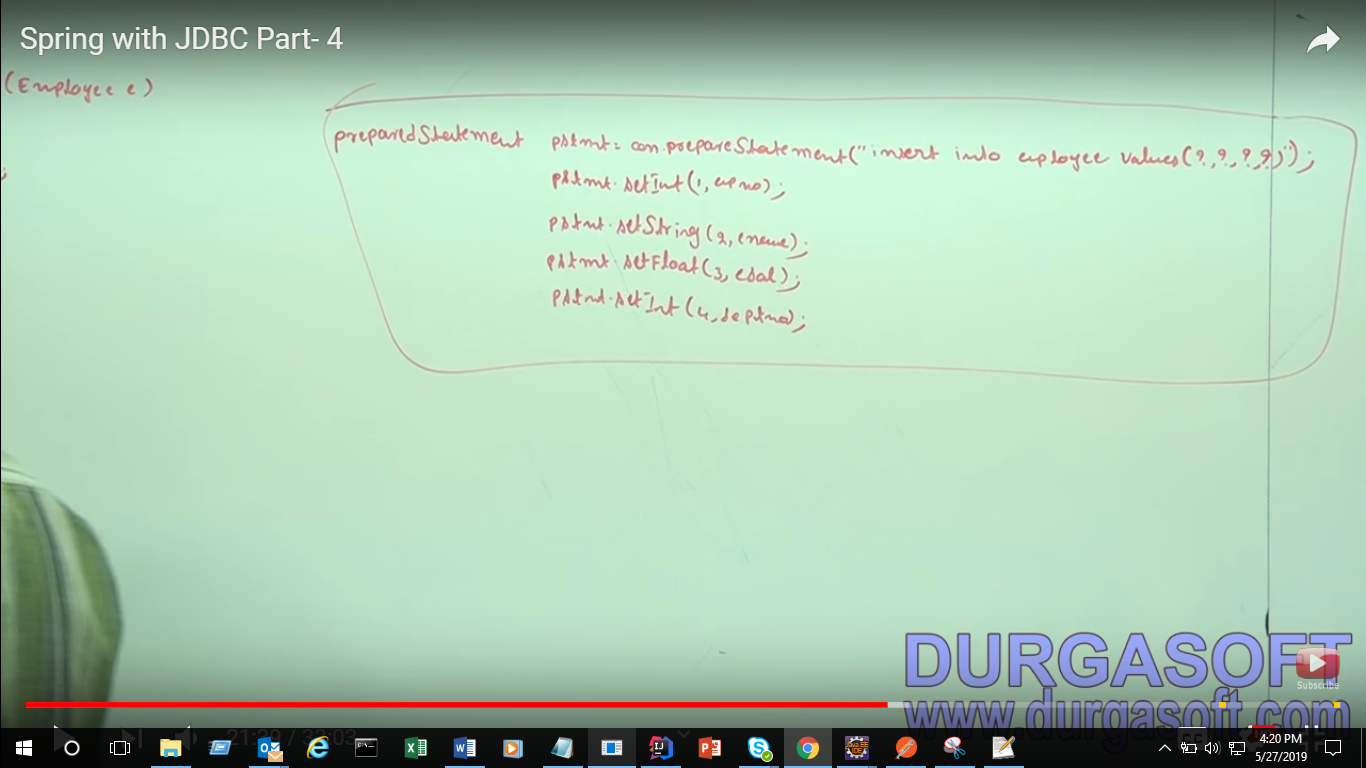 Spring with JDBC Part- 4
(Employee e)
;
preparedStatement pstmt = con.prepareStatement("insert into employee values(?,?,?,?)");
pstmt.setInt(1, empno);
pstmt.setString(2, ename);
pstmt.setFloat(3, esal);
pstmt.setInt(4, deptno);
DURGASOFT
Subscribe
www.durgasoft.com
21:39 / 33:03
4:20 PM
5/27/2019